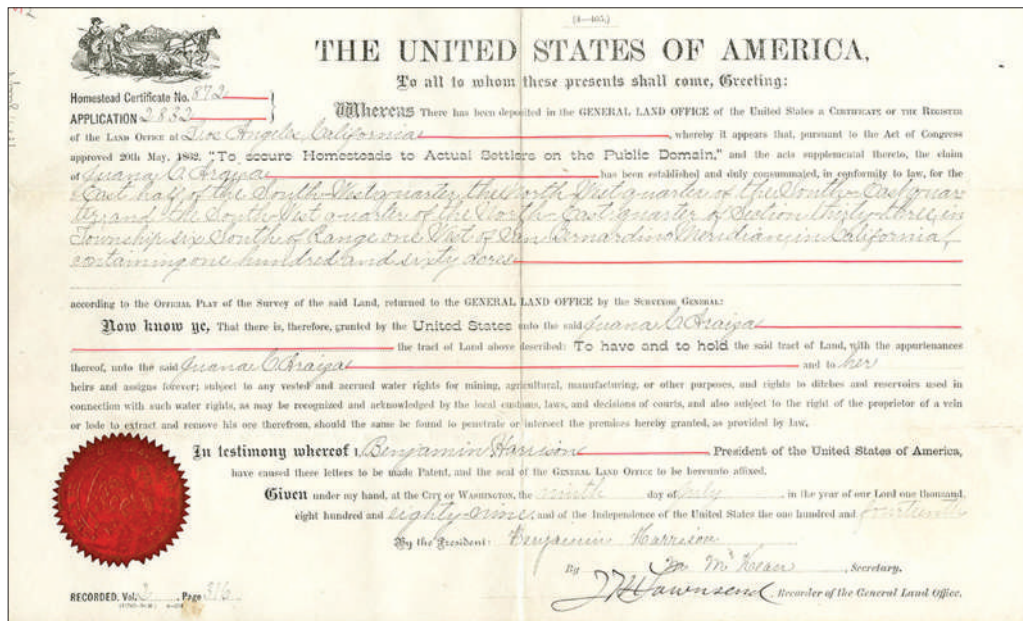 (4—405.)
THE UNITED STATES OF AMERICA,
To all to whom these presents shall come, Greeting:
Homestead Certificate No. 872
APPLICATION 2832
Whereas There has been deposited in the GENERAL LAND OFFICE of the United States a CERTIFICATE OF THE REGISTER
OF THE LAND OFFICE AT Los Angeles, California, whereby it appears that, pursuant to the Act of Congress
approved 20th May, 1862, "To secure Homesteads to Actual Settlers on the Public Domain," and the acts supplemental thereto, the claim
of Juana C Araiza has been established and duly consummated, in conformity to law, for the
East half of the South-West quarter, the North West quarter of the South-East quar-
ter, and the South-West quarter of the North-East quarter of Section thirty-three, in
Township six South of Range one West of San Bernardino Meridian, in California,
containing one hundred and sixty acres
according to the OFFICIAL PLAT of the Survey of the said Land, returned to the GENERAL LAND OFFICE by the SURVEYOR GENERAL:
Now know ye, That there is, therefore, granted by the United States unto the said Juana C Araiza
the tract of Land above described: To have and to hold the said tract of Land, with the appurtenances
thereof, unto the said Juana C Araiza and to her
heirs and assigns forever; subject to any vested and accrued water rights for mining, agricultural, manufacturing, or other purposes, and rights to ditches and reservoirs used in
connection with such water rights, as may be recognized and acknowledged by the local customs, laws, and decisions of courts, and also subject to the right of the proprietor of a vein
or lode to extract and remove his ore therefrom, should the same be found to penetrate or intersect the premises hereby granted, as provided by law.
In testimony whereof I, Benjamin Harrison President of the United States of America,
have caused these letters to be made Patent, and the seal of the GENERAL LAND OFFICE to be hereunto affixed.
Given under my hand, at the CITY OF WASHINGTON, the ninth day of July, in the year of our Lord one thousand,
eight hundred and eighty-nine, and of the Independence of the United States the one hundred and fourteenth
By the President: Benjamin Harrison
By M McKean, Secretary.
RECORDED, Vol. 2, Page 316
Townsend, Recorder of the General Land Office.